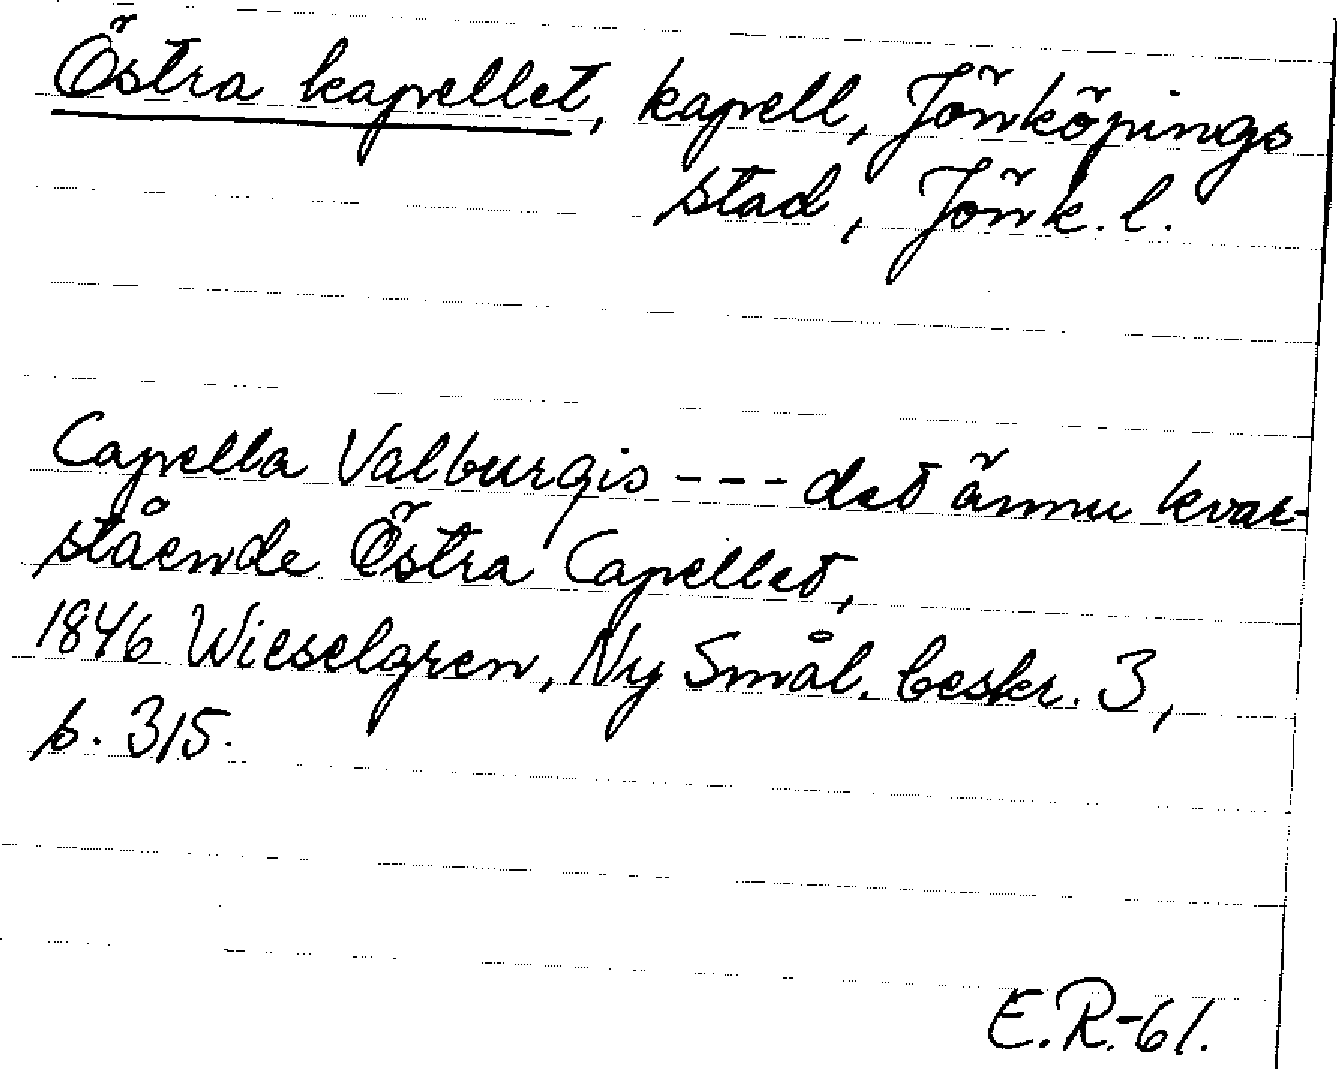 Östra kapellet, kapell, Jönköpings
stad, Jönk. l.
Capella Valburgis --- det ännu kvar-
stående Östra Capellet,
1846 Wieselgren, Ny Smål. beskr. 3,
s. 315.
E.R.-61.